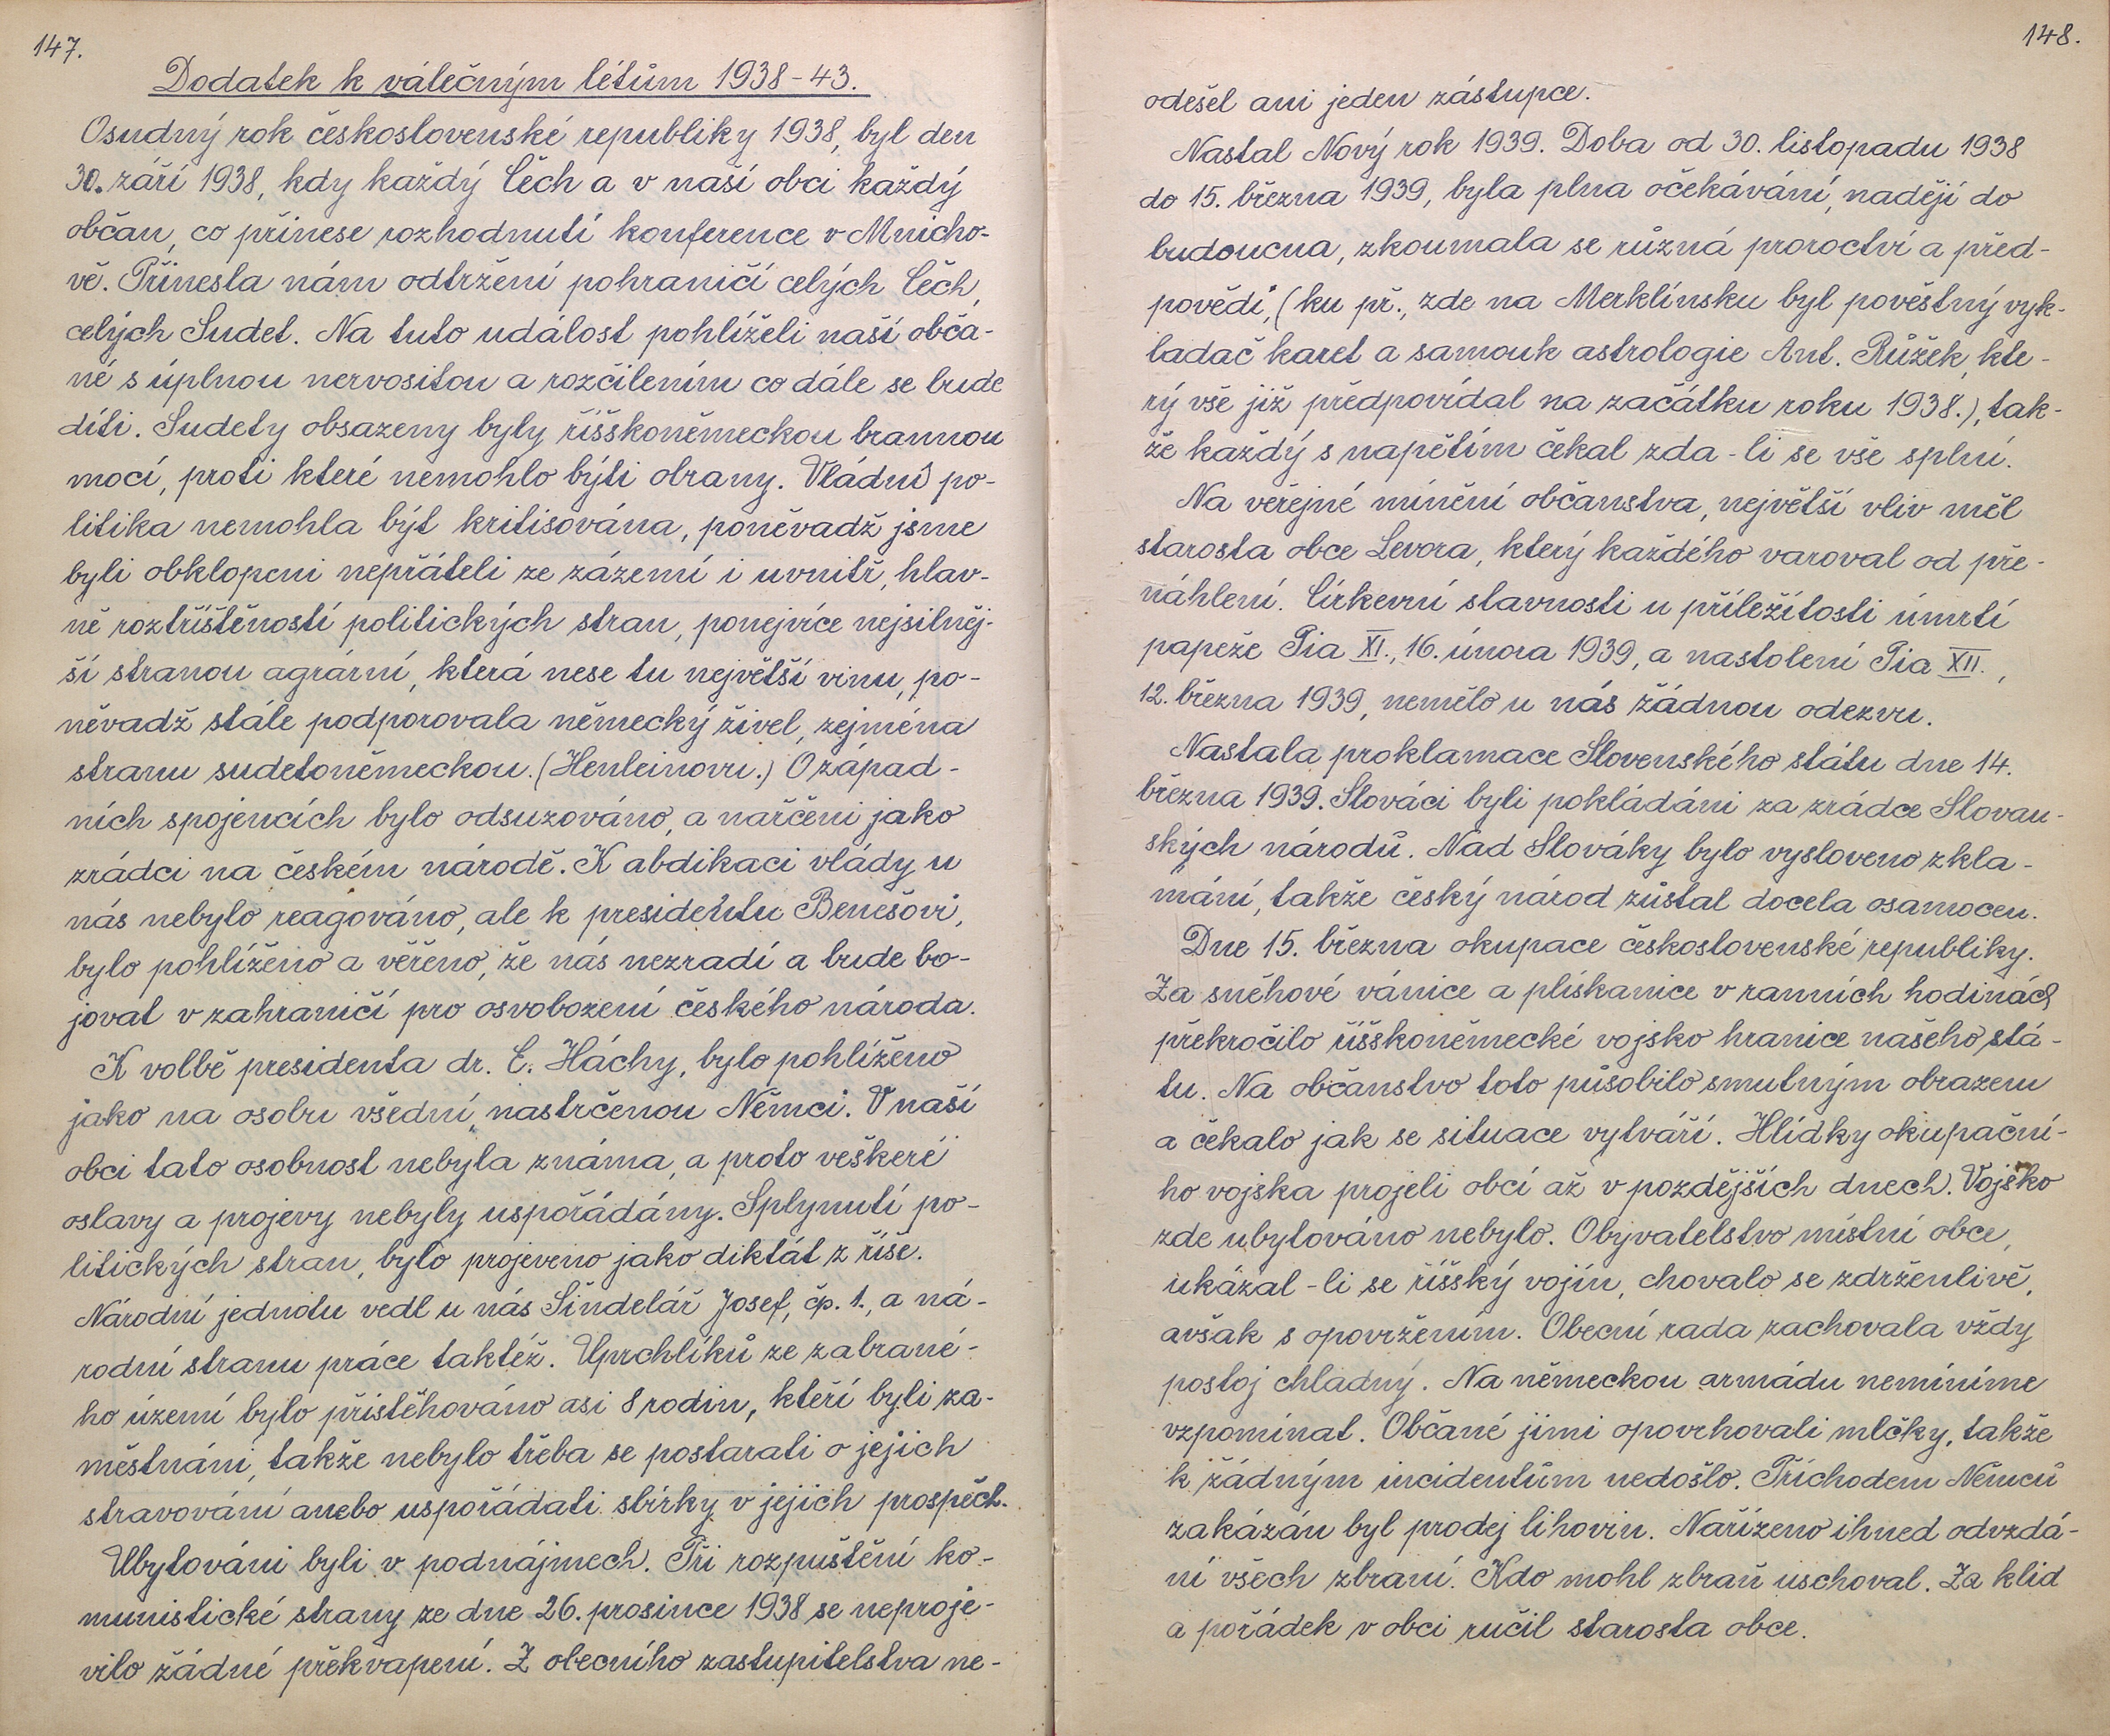 147.
Dodatek k válečným létům 1938-43.
Osudný rok československé republiky 1938, byl den
30. září 1938, kdy každý Čech a v naší obci každý
občan, co přinese rozhodnutí konference v Mnicho-
vě. Přinesla nám odtržení pohraničí celých Čech,
celých Sudet. Na tuto událost pohlíželi naší obča-
né s úplnou nervositou a rozčilením co dále se bude
díti. Sudety obsazeny byly říšskoněmeckou brannou
mocí, proti které nemohlo býti obrany. Vládní po-
litika nemohla být kritisována, poněvadž jsme
byli obklopeni nepřáteli ze zázemí i uvnitř, hlav-
ně roztříštěností politických stran, ponejvíce nejsilněj-
ší stranou agrární, která nese tu největší vinu, po-
něvadž stále podporovala německý živel, zejména
stranu sudetoněmeckou. (Henleinovu.) O západ-
ních spojencích bylo odsuzováno, a nařčeni jako
zrádci na českém národě. K abdikaci vlády u
nás nebylo reagováno, ale k presidentu Benešovi,
bylo pohlíženo a věřeno, že nás nezradí a bude bo-
jovat v zahraničí pro osvobození českého národa.
K volbě presidenta dr. E. Háchy, bylo pohlíženo
jako na osobu všední, nastrčenou Němci. V naší
obci tato osobnost nebyla známa, a proto veškeré
oslavy a projevy nebyly uspořádány. Splynutí po-
litických stran, bylo projeveno jako diktát z říše.
Národní jednotu vedl u nás Šindelář Josef, čp. 1., a ná-
rodní stranu práce taktéž. Uprchlíků ze zabrané-
ho území bylo přistěhováno asi 8 rodin, kteří byli za-
městnáni, takže nebylo třeba se postarati o jejich
stravování anebo uspořádati sbírky v jejich prospěch.
Ubytováni byli v podnájmech. Při rozpuštění ko-
munistické strany ze dne 26. prosince 1938 se neproje-
vilo žádné překvapení. Z obecního zastupitelstva ne-
148.
odešel ani jeden zástupce.
Nastal Nový rok 1939. Doba od 30. listopadu 1938
do 15. března 1939, byla plna očekávání, nadějí do
budoucna, zkoumala se různá proroctví a před-
povědi, (ku př., zde na Merklínsku byl pověstný vyk-
ladač karet a samouk astrologie Ant. Růžek, kte-
rý vše již předpovídal na začátku roku 1938.), tak-
že každý s napětím čekal zda-li se vše splní.
Na veřejné mínění občanstva, největší vliv měl
starosta obce Levora, který každého varoval od pře-
náhlení. Církevní slavnosti u příležitosti úmrtí
papeže Pia XI., 16. února 1939, a nastolení Pia XII.,
12. března 1939, nemělo u nás žádnou odezvu.
Nastala proklamace Slovenského státu dne 14.
března 1939. Slováci byli pokládáni za zrádce Slovan-
ských národů. Nad Slováky bylo vysloveno zkla-
mání, takže český národ zůstal docela osamocen.
Dne 15. března okupace československé republiky.
Za sněhové vánice a plískanice v ranních hodinách
překročilo říšskoněmecké vojsko hranice našeho stá-
tu. Na občanstvo toto působilo smutným obrazem
a čekalo jak se situace vytváří. Hlídky okupační-
ho vojska projeli obcí až v pozdějších dnech. Vojsko
zde ubytováno nebylo. Obyvatelstvo místní obce,
ukázal-li se říšský vojín, chovalo se zdrženlivě,
avšak s opovržením. Obecní rada zachovala vždy
postoj chladný. Na německou armádu nemíníme
vzpomínat. Občané jimi opovrhovali mlčky, takže
k žádným incidentům nedošlo. Příchodem Němců
zakázán byl prodej lihovin. Nařízeno ihned odvzdá-
ní všech zbraní. Kdo mohl zbraň uschoval. Za klid
a pořádek v obci ručil starosta obce.